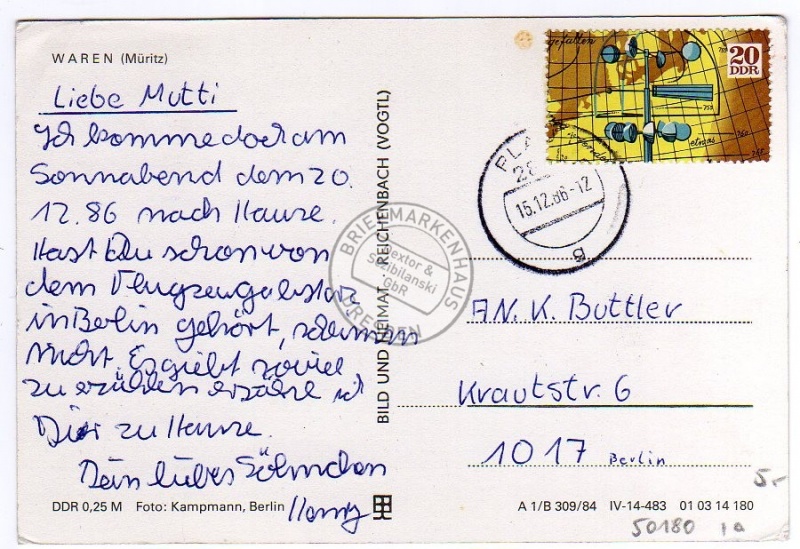 WAREN (Müritz)
Liebe Mutti
Ich komme doch am
Sonnabend dem 20.
12.86 nach Hause.
Hast Du schon von
dem Flugzeugabsturz
in Berlin gehört, schlimm
nicht. Es giebt soviel
zu erzählen erzähle ich
Dir zu Hause.
Dein liebes Söhnchen
DDR 0,25 M Foto: Kampmann, Berlin
BILD UND HEIMAT · REICHENBACH (VOGTL)
BRIEFMARKENHAUS
Dextor &
Szibilanski
GbR
DRESDEN
gefallen
20
DDR
750
760
765
etwas
15.12.86-12
AN. K. Buttler
Krautstr. 6
1017 Berlin
5,-
A 1/B 309/84 IV-14-483 01 03 14 180
50180